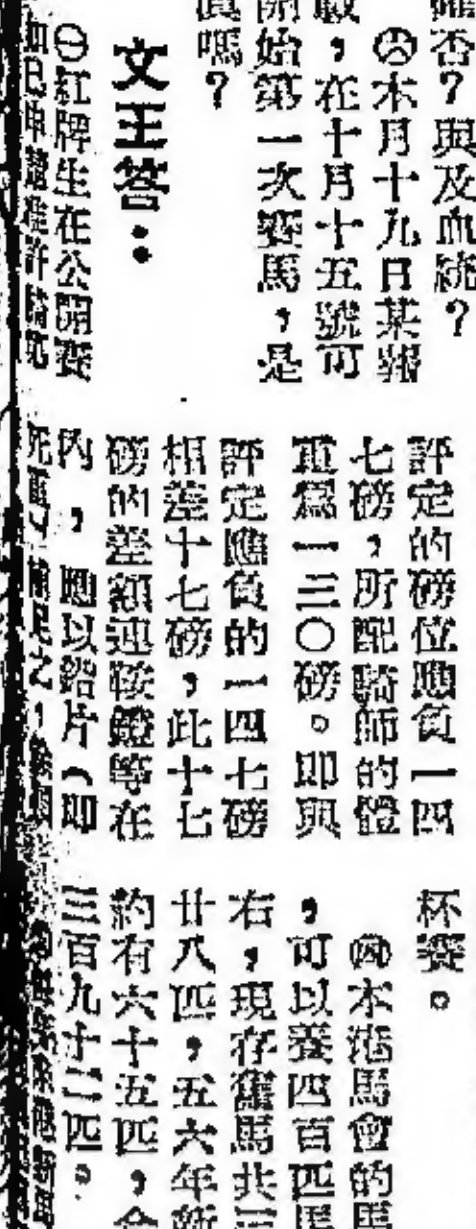 確否？與及血統？
㊂本月十九日某報
載，在十月十五號可
開始第一次賽馬，是
真嗎？
文王答：
㊀紅牌生在公開賽
如已申請准許騎
評定的磅位應負一四
七磅，所配騎師的體
重爲一三〇磅。即與
評定應負的一四七磅
相差十七磅，此十七
磅的差額連鞍鐙等在
內，應以鉛片（即
死重）補足之，
杯賽。
㊃本港馬會的馬
，可以養四百匹馬
右，現存舊馬共三
廿八匹，五六年新
約有六十五匹，合
三百九十三匹。